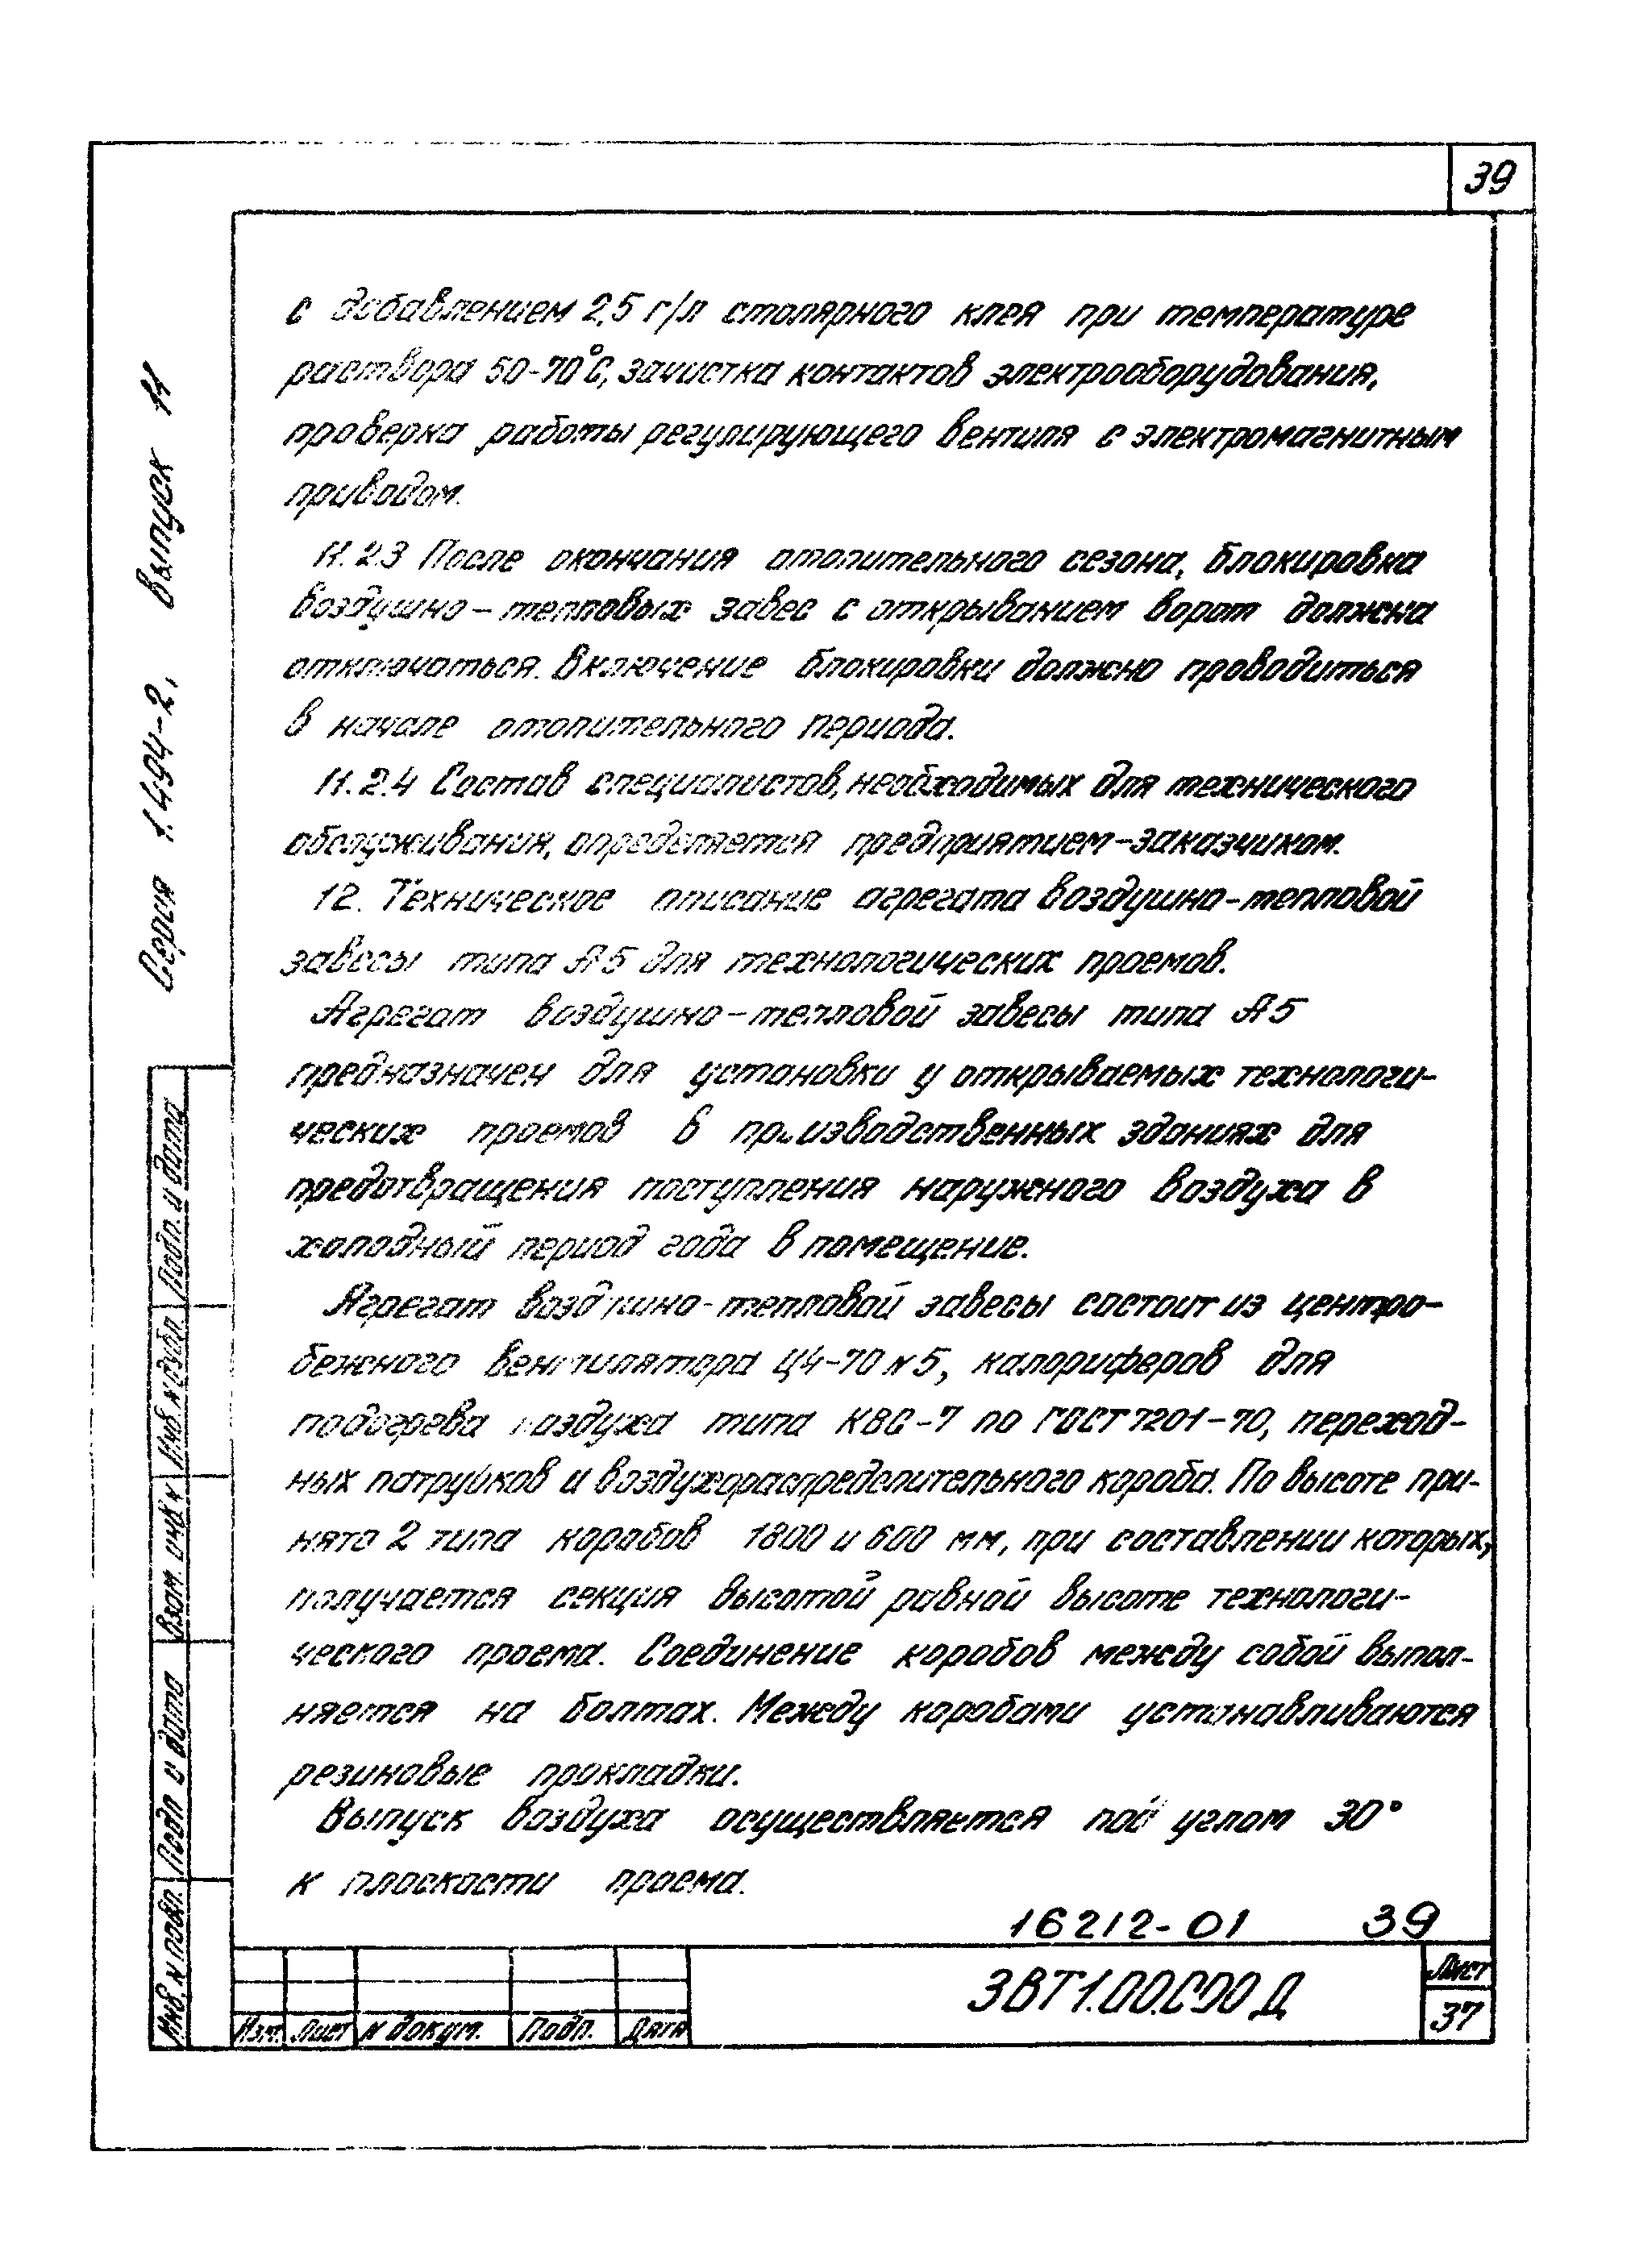 39
с добавлением 2,5 г/л столярного клея при температуре
раствора 50-70°С, зачистка контактов электрооборудования,
проверка работы регулирующего вентиля с электромагнитным
приводом.
11.2.3 После окончания отопительного сезона, блокировка
воздушно-тепловых завес с открыванием ворот должна
отключаться. Включение блокировки должно проводиться
в начале отопительного периода.
11.2.4 Состав специалистов, необходимых для технического
обслуживания, определяется предприятием-заказчиком.
12. Техническое описание агрегата воздушно-тепловой
завесы типа А5 для технологических проемов.
Агрегат воздушно-тепловой завесы типа А5
предназначен для установки у открываемых технологи-
ческих проемов в производственных зданиях для
предотвращения поступления наружного воздуха в
холодный период года в помещение.
Агрегат воздушно-тепловой завесы состоит из центро-
бежного вентилятора Ц4-70 N5, калориферов для
подогрева воздуха типа КВС-7 по ГОСТ 7201-70, переход-
ных патрубков и воздухораспределительного короба. По высоте при-
нято 2 типа коробов 1800 и 600 мм, при составлении которых,
получается секция высотой равной высоте технологи-
ческого проема. Соединение коробов между собой выпол-
няется на болтах. Между коробами устанавливаются
резиновые прокладки.
Выпуск воздуха осуществляется под углом 30°
к плоскости проема.
16212-01 39
ЗВТ1.00.000 Д
Лист
37
Изм. Лист N докум. Подп. Дата
Серия 1.494-2, выпуск 11
Подп. и дата
Инв. N дубл.
Взам. инв. N
Подп и дата
Инв. N подл.